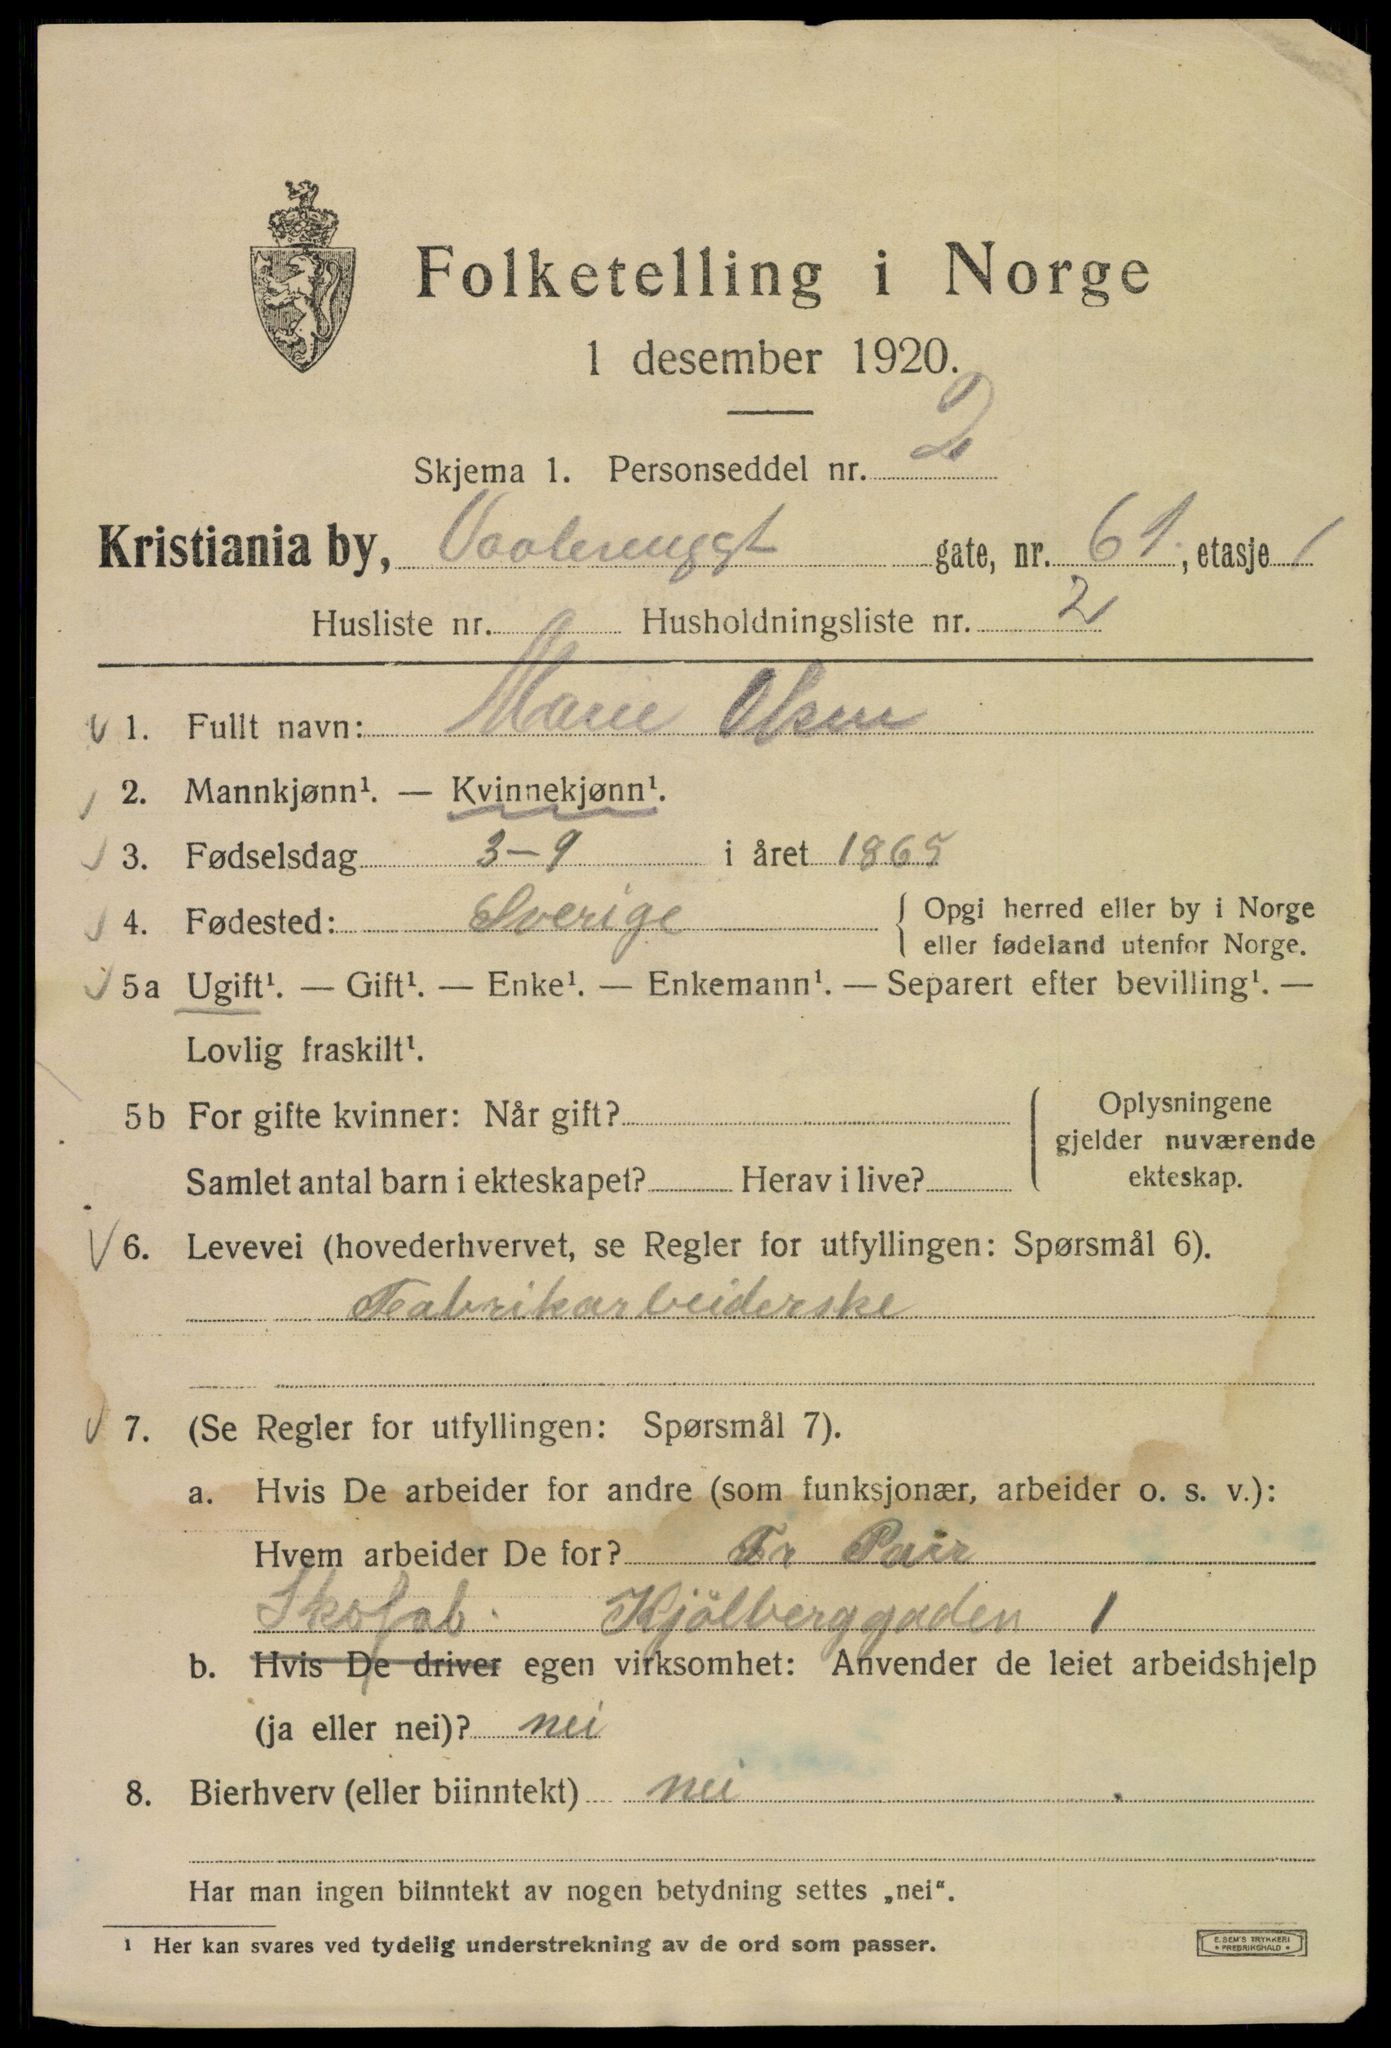 Folketelling i Norge
1 desember 1920.
Skjema 1. Personseddel nr. 2
Kristiania by, Vaalerenggt gate, nr. 61, etasje 1
Husliste nr. Husholdningsliste nr. 2
1. Fullt navn: Marie Olsen
2. Mannkjønn¹. — Kvinnekjønn¹.
3. Fødselsdag 3-9 i året 1865
4. Fødested: Sverige { Opgi herred eller by i Norge
eller fødeland utenfor Norge.
5a Ugift¹. — Gift¹. — Enke¹. — Enkemann¹. — Separert efter bevilling¹. —
Lovlig fraskilt¹.
5b For gifte kvinner: Når gift? { Oplysningene
gjelder nuværende
Samlet antal barn i ekteskapet? Herav i live? ekteskap.
6. Levevei (hovederhvervet, se Regler for utfyllingen: Spørsmål 6).
Fabrikarbeiderske
7. (Se Regler for utfyllingen: Spørsmål 7).
a. Hvis De arbeider for andre (som funksjonær, arbeider o. s. v.):
Hvem arbeider De for? Fr
Skofab. Kjölberggaden 1
b. Hvis De driver egen virksomhet: Anvender de leiet arbeidshjelp
(ja eller nei)? nei
8. Bierhverv (eller biinntekt) nei
Har man ingen biinntekt av nogen betydning settes „nei“.
¹ Her kan svares ved tydelig understrekning av de ord som passer.
E. SEM'S TRYKKERI
• FREDRIKSHALD •